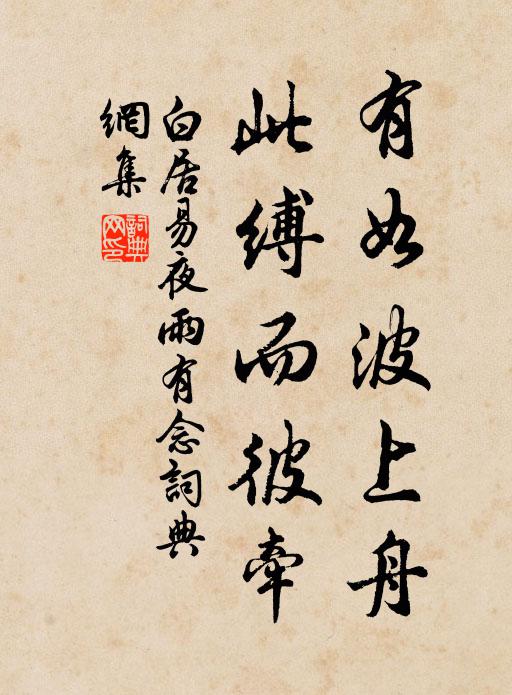 有如波上舟
此縛而彼牽
白居易夜雨有念詞典
網集
詞典
网印